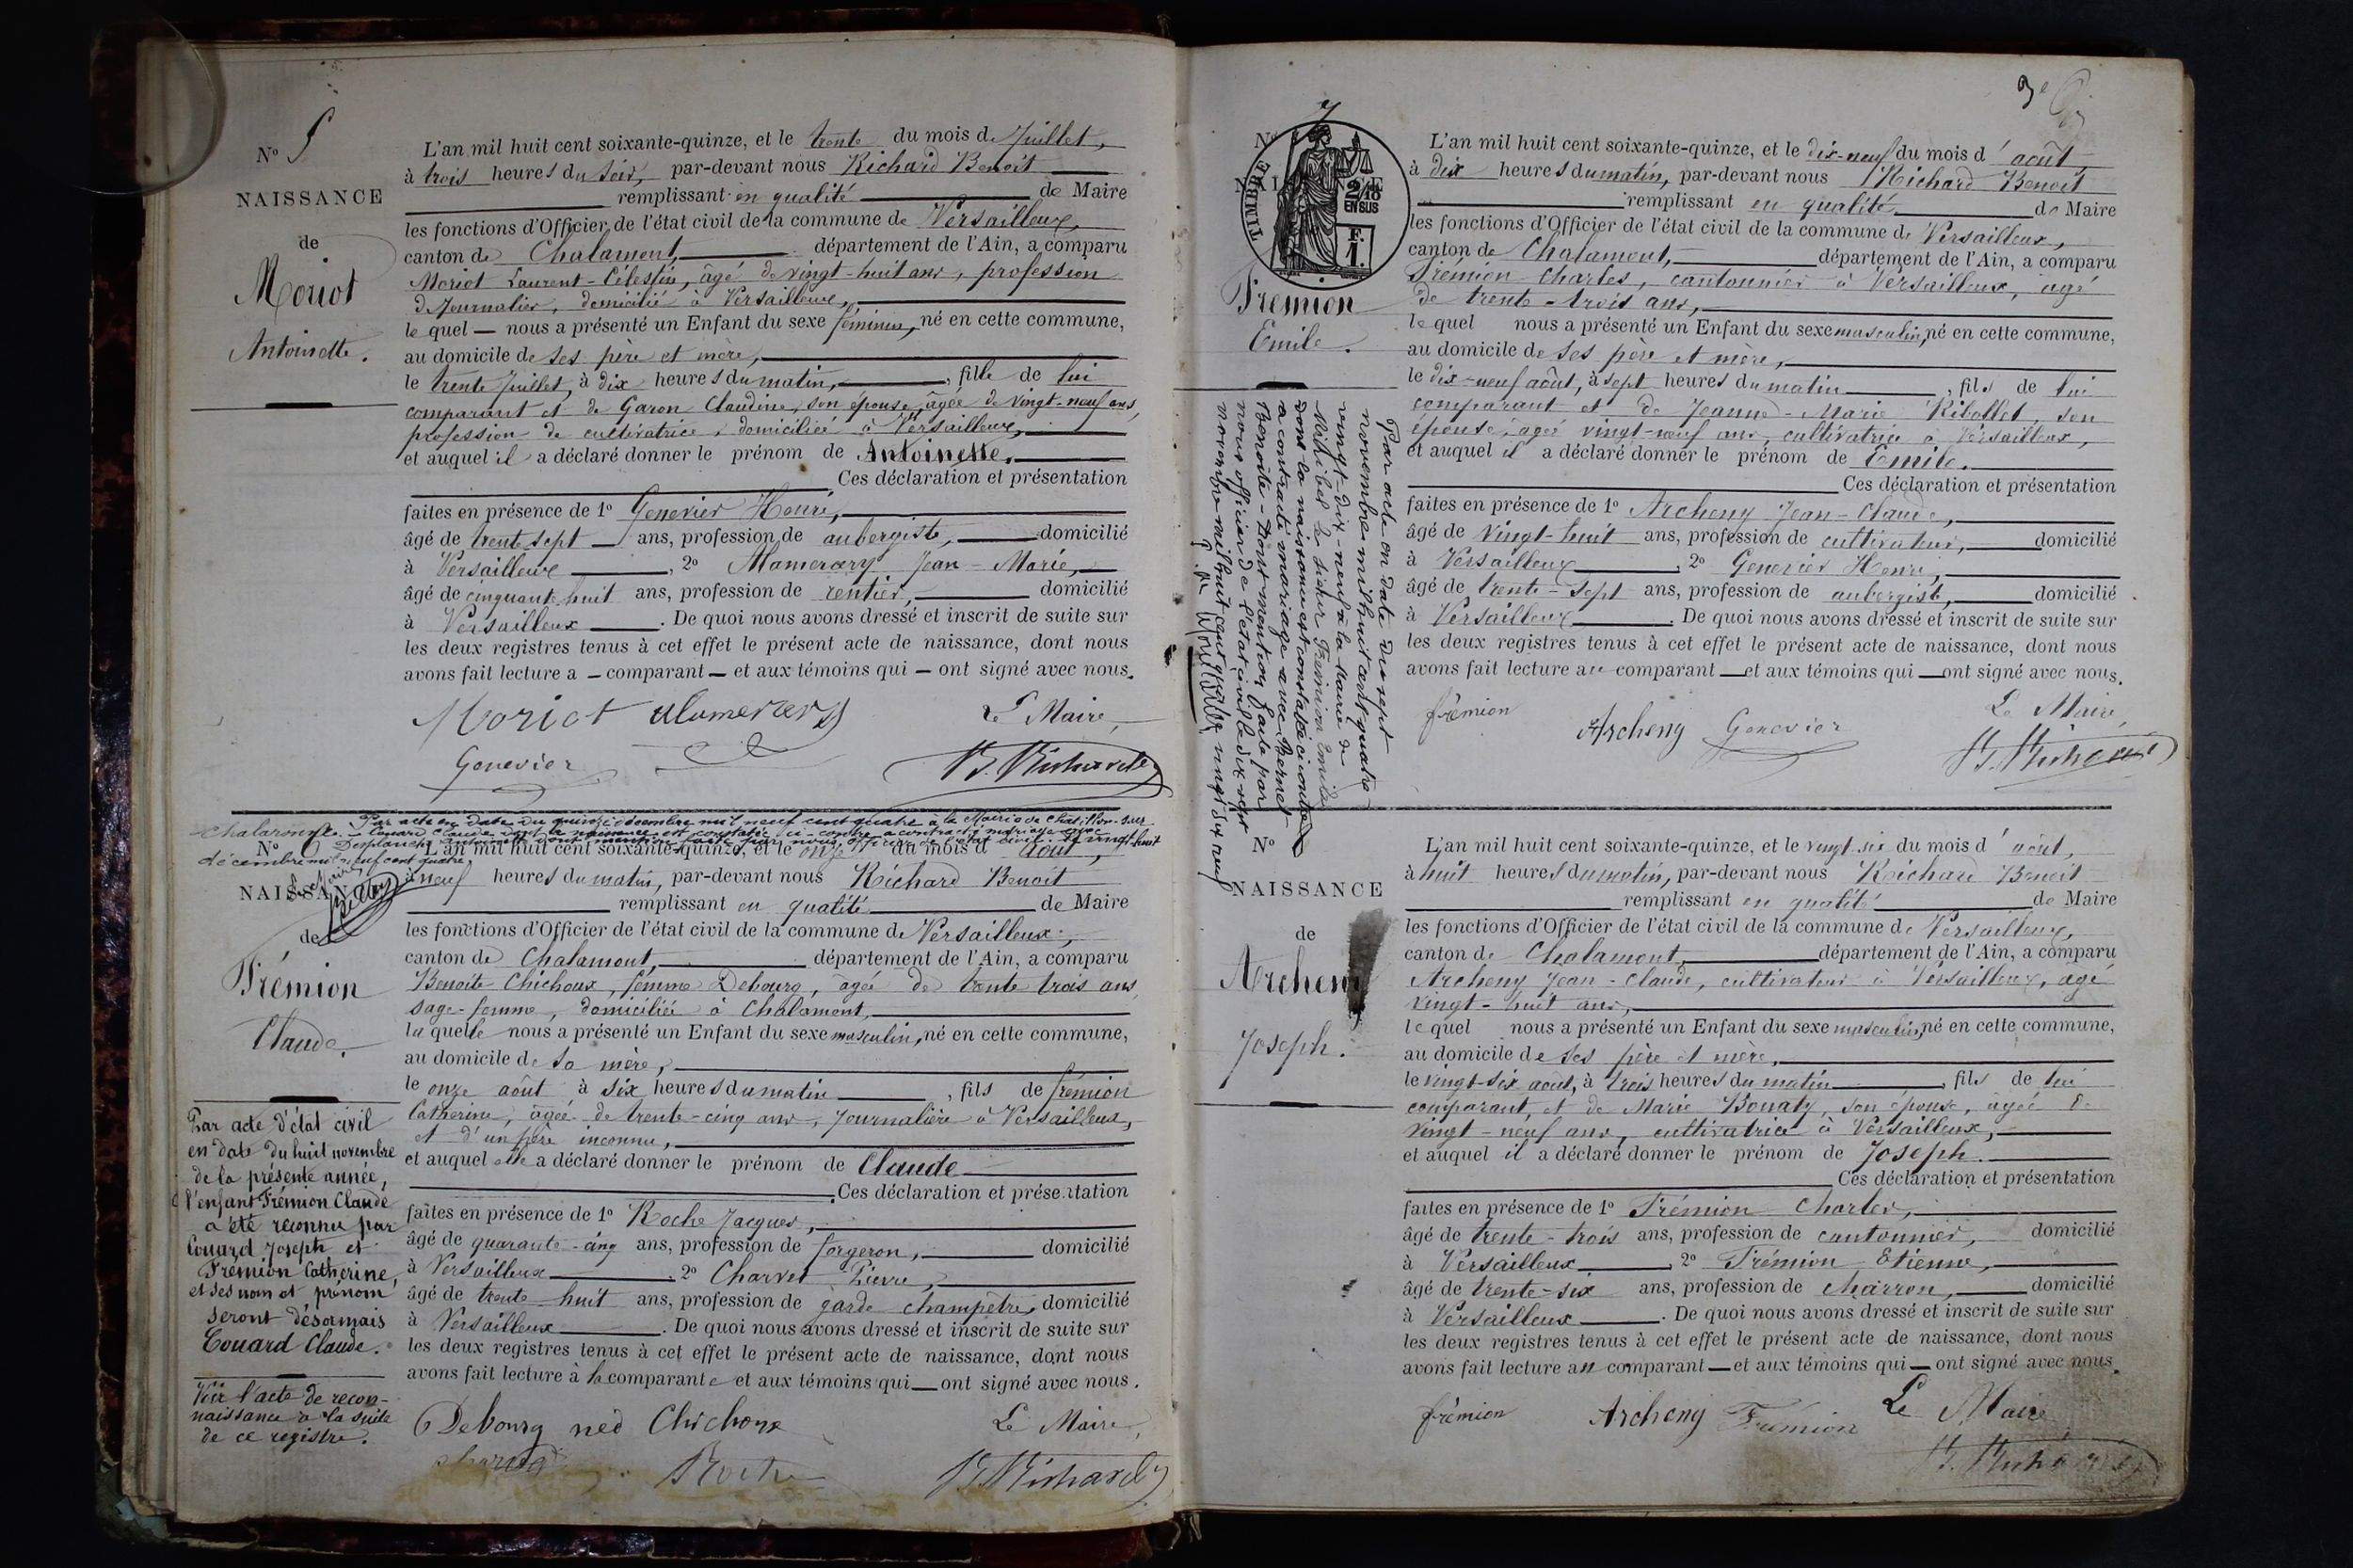 N° 5
NAISSANCE
de
Moriot
Antoinette.
L'an mil huit cent soixante-quinze, et le trente du mois d. Juillet,
à trois heures du soir, par-devant nous Richard Benoit
remplissant en qualité de Maire
les fonctions d'Officier de l'état civil de la commune de Versailleux,
canton de Chalamont, département de l'Ain, a comparu
Moriot Laurent-Célestin, âgé de vingt-huit ans, profession
d Journalier, domicilié à Versailleux,
le quel — nous a présenté un Enfant du sexe féminin, né en cette commune,
au domicile de ses père et mère,
le trente Juillet, à dix heures du matin, , fille de lui
comparant et de Garon Claudine, son épouse, âgée de vingt-neuf ans,
profession de cultivatrice, domiciliée à Versailleux,
et auquel il a déclaré donner le prénom de Antoinette.
Ces déclaration et présentation
faites en présence de 1° Genevier Henri,
âgé de trente sept ans, profession de aubergiste, domicilié
à Versailleux , 2° Mamerary Jean-Marie,
âgé de cinquante huit ans, profession de rentier, domicilié
à Versailleux . De quoi nous avons dressé et inscrit de suite sur
les deux registres tenus à cet effet le présent acte de naissance, dont nous
avons fait lecture a — comparant — et aux témoins qui — ont signé avec nous.
Moriot
Le Maire,
Genevier
B. Richard
Par acte en date du quinze décembre mil neuf cent quatre à la Mairie de Chatillon-sur-
Chalaronne. Couard Claude dont la naissance est constatée ci-contre a contracté mariage avec
Desplanche Antoinette dont mention faite par nous officier de l'état civil le vingt-huit
décembre mil neuf cent quatre.
Le Maire
N° 6
NAISSANCE
de
Frémion
Claude.
L'an mil huit cent soixante-quinze, et le onze du mois d août,
à neuf heures du matin, par-devant nous Richard Benoit
remplissant en qualité de Maire
les fonctions d'Officier de l'état civil de la commune de Versailleux,
canton de Chalamont, département de l'Ain, a comparu
Benoite Chichoux, femme Debourg, âgée de trente trois ans,
sage-femme, domiciliée à Chalamont,
la quelle nous a présenté un Enfant du sexe masculin, né en cette commune,
au domicile de sa mère,
le onze août à six heures du matin , fils de frémion
Catherine, âgée de trente-cinq ans, journalière à Versailleux,
et d'un père inconnu,
et auquel elle a déclaré donner le prénom de Claude
Ces déclaration et présentation
faites en présence de 1° Roche Jacques,
âgé de quarante-cinq ans, profession de forgeron, domicilié
à Versailleux , 2° Charvet Pierre,
âgé de trente huit ans, profession de garde champêtre, domicilié
à Versailleux . De quoi nous avons dressé et inscrit de suite sur
les deux registres tenus à cet effet le présent acte de naissance, dont nous
avons fait lecture à la comparante et aux témoins qui — ont signé avec nous.
Par acte d'état civil
en date du huit novembre
de la présente année,
l'enfant Frémion Claude
a été reconnu par
Couard Joseph et
Frémion Catherine,
et ses nom et prénom
seront désormais
Couard Claude.
Voir l'acte de recon-
naissance à la suite
de ce registre.
Debourg née Chichoux
Le Maire,
Roche
B. Richard
N° 7
NAISSANCE
TIMBRE
2/10
EN SUS
F.
1.
Frémion
Emile.
L'an mil huit cent soixante-quinze, et le dix-neuf du mois d' août,
à dix heures du matin, par-devant nous Richard Benoit
remplissant en qualité de Maire
les fonctions d'Officier de l'état civil de la commune de Versailleux,
canton de Chalamont, département de l'Ain, a comparu
Frémion Charles, cantonnier à Versailleux, âgé
de trente-trois ans,
le quel nous a présenté un Enfant du sexe masculin, né en cette commune,
au domicile de ses père et mère,
le dix-neuf août, à sept heures du matin , fils de lui
comparant et de Jeanne-Marie Ribollet, son
épouse, âgée vingt-neuf ans, cultivatrice à Versailleux,
et auquel il a déclaré donner le prénom de Emile.
Ces déclaration et présentation
faites en présence de 1° Archeny Jean-Claude,
âgé de vingt-huit ans, profession de cultivateur, domicilié
à Versailleux , 2° Genevier Henri,
âgé de trente-sept ans, profession de aubergiste, domicilié
à Versailleux . De quoi nous avons dressé et inscrit de suite sur
les deux registres tenus à cet effet le présent acte de naissance, dont nous
avons fait lecture au comparant — et aux témoins qui — ont signé avec nous.
Par acte en date du sept
novembre mil huit cent quatre-
vingt-dix-neuf à la Mairie de
Miribel le sieur Frémion Emile
dont la naissance est constatée ci contre
a contracté mariage avec Bernet
Benoite - Dont mention faite par
nous officier de l'état civil le dix-sept
novembre mil huit cent quatre vingt dix neuf
frémion
Archeny Genevier
Le Maire,
B. Richard
N° 8
NAISSANCE
de
Archeny
Joseph.
L'an mil huit cent soixante-quinze, et le vingt-six du mois d' août,
à huit heures du matin, par-devant nous Richard Benoit
remplissant en qualité de Maire
les fonctions d'Officier de l'état civil de la commune de Versailleux,
canton de Chalamont, département de l'Ain, a comparu
Archeny Jean-Claude, cultivateur à Versailleux, âgé
vingt-huit ans,
le quel nous a présenté un Enfant du sexe masculin, né en cette commune,
au domicile de ses père et mère,
le vingt-six août, à trois heures du matin , fils de lui
comparant, et de Marie Bonaty, son épouse, âgée de
vingt-neuf ans, cultivatrice à Versailleux,
et auquel il a déclaré donner le prénom de Joseph.
Ces déclaration et présentation
faites en présence de 1° Frémion Charles,
âgé de trente-trois ans, profession de cantonnier, domicilié
à Versailleux , 2° Frémion Etienne,
âgé de trente-six ans, profession de charron, domicilié
à Versailleux . De quoi nous avons dressé et inscrit de suite sur
les deux registres tenus à cet effet le présent acte de naissance, dont nous
avons fait lecture au comparant — et aux témoins qui — ont signé avec nous.
frémion Archeny Frémion Le Maire
B. Richard